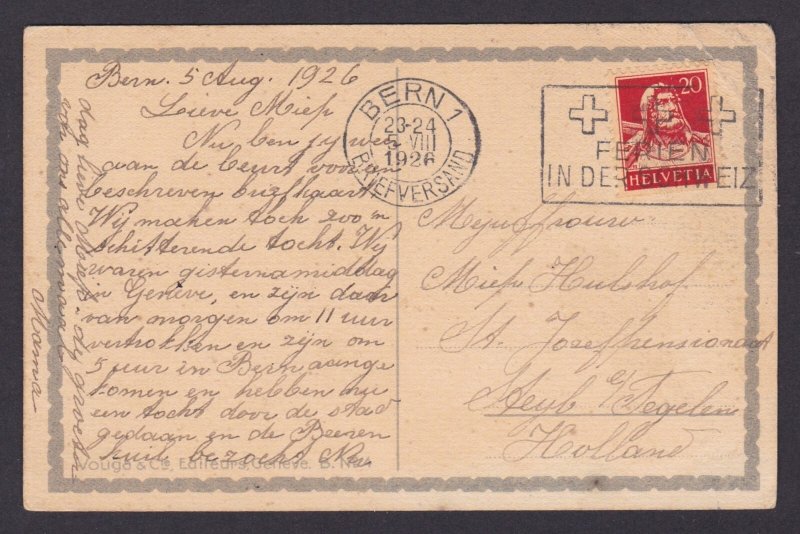 Bern. 5 Aug. 1926
Lieve Miep
Nu ben jy weer
aan de beurt voor een
beschreven briefkaart
Wij maken toch zoo'n
schitterende tocht. Wij
waren gisternamiddag
in Genève, en zijn daar
van morgen om 11 uur
vertrokken en zijn om
5 uur in Bern aange
komen en hebben nu
een tocht door de stad
gedaan en de Beeren
kuil bezocht. Nu
Vouga & Cie, Editeurs, Genève. B. No
Dag lieve
van ons allemaal
Mama
BERN 1
23-24
5 VIII
1926
BRIEFVERSAND
20
HELVETIA
FERIEN
IN DER SCHWEIZ
Mejuffrouw
Miep Hulshof
St. Josefpensionaat
Steyl b/ Tegelen
Holland